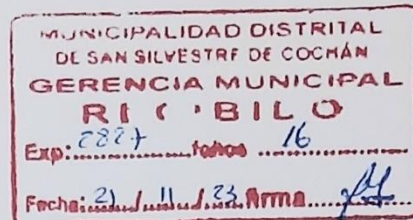 MUNICIPALIDAD DISTRITAL
DE SAN SILVESTRE DE COCHÁN
GERENCIA MUNICIPAL
R I C I B I L O
Exp: 2827 folios 16
Fecha: 21 / 11 / 23 Firma